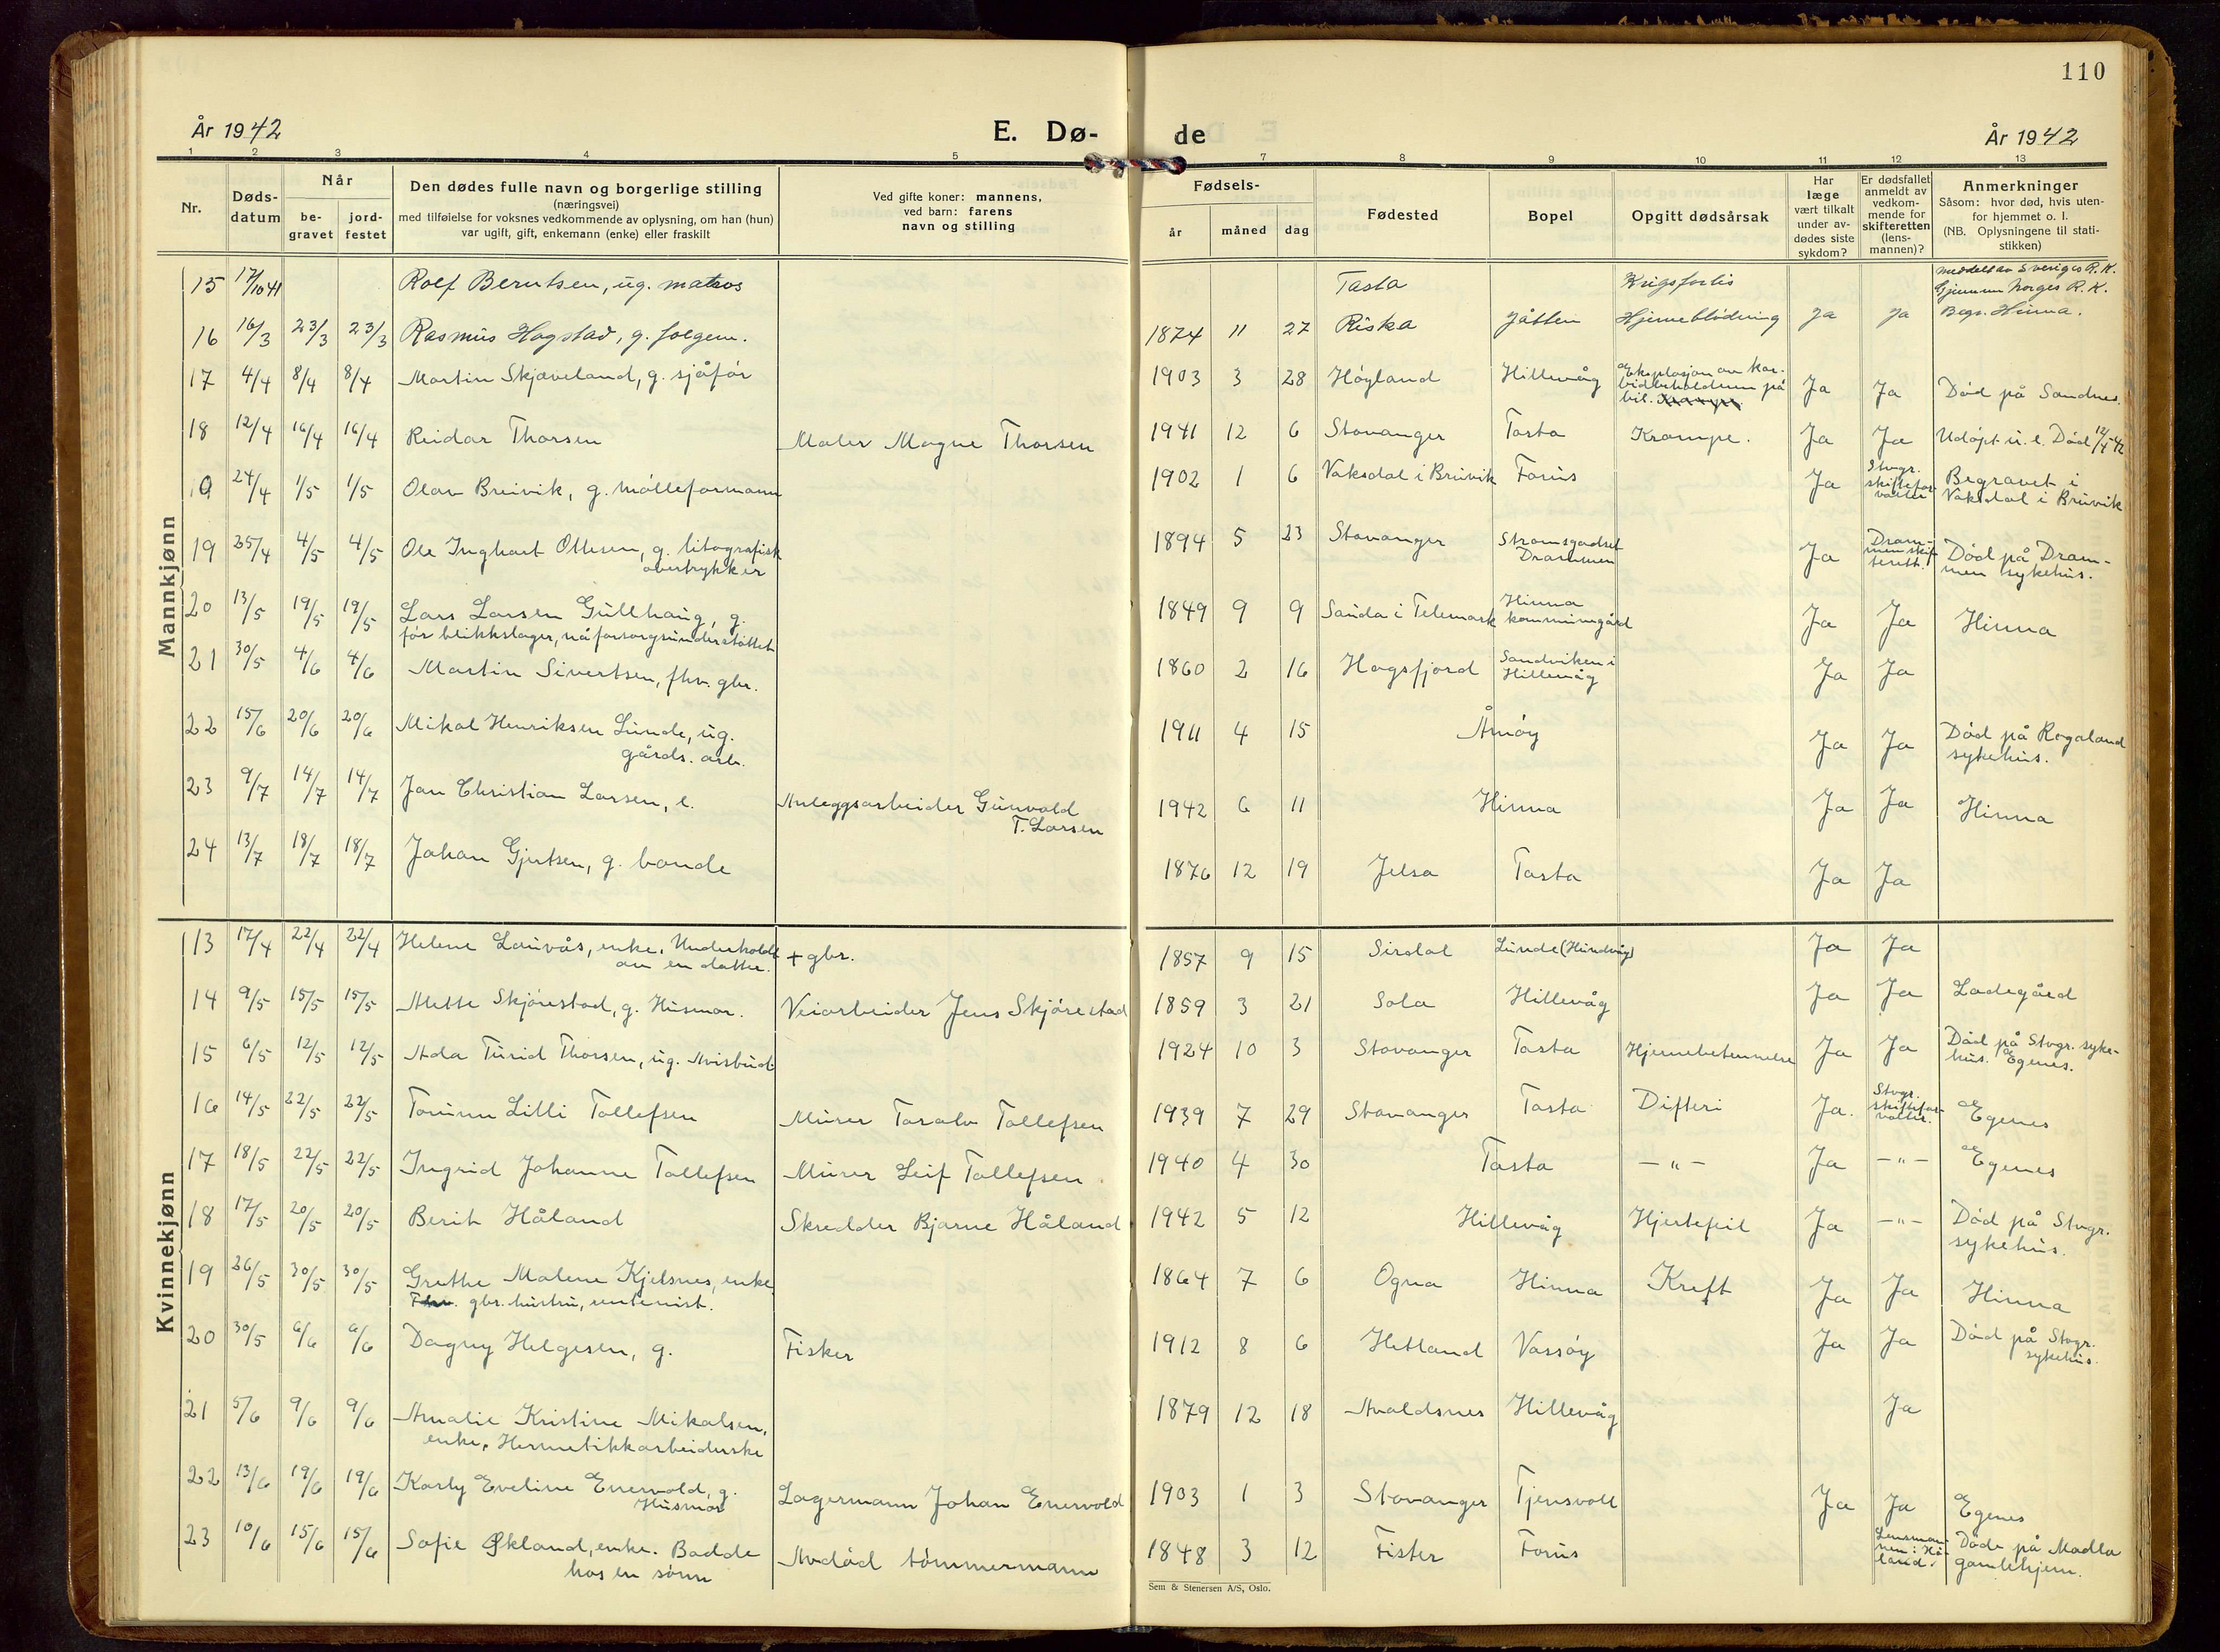 110
År 1942
E. Dø-
de
År 1942
1 2 3 4 5 7 8 9 10 11 12 13
Nr.
Døds-
datum
Når
be-
gravet
jord-
festet
Den dødes fulle navn og borgerlige stilling
(næringsvei)
med tilføielse for voksnes vedkommende av oplysning, om han (hun)
var ugift, gift, enkemann (enke) eller fraskilt
Ved gifte koner: mannens,
ved barn: farens
navn og stilling
Fødsels-
år
måned
dag
Fødested
Bopel
Opgitt dødsårsak
Har
læge
vært tilkalt
under av-
dødes siste
sykdom?
Er dødsfallet
anmeldt av
vedkom-
mende for
skifteretten
(lens-
mannen)?
Anmerkninger
Såsom: hvor død, hvis uten-
for hjemmet o. l.
(NB. Oplysningene til stati-
stikken)
Mannkjønn
15 17/10 41 Rolf Berntsen, ug. matros Tasta Krigsforlis Meddelt av Sveriges R. K.
Gjennem Norges R. K.
16 16/3 23/3 23/3 Rasmus Hogstad, g. 1874 11 27 Riska Jåtten Hjerneblødning Ja Ja Begr. Hinna.
17 4/4 8/4 8/4 Martin Skjæveland, g. sjåfør 1903 3 28 Høyland Hillevåg Eksplosjon av kar-
bidbeholderen på
bil. Ja Ja Død på Sandnes.
18 12/4 16/4 16/4 Reidar Thorsen Maler Magne Thorsen 1941 12 6 Stavanger Tasta Krampe. Ja Ja Udøpt u. e. Død 12/4 42
19 24/4 1/5 1/5 Olav Breivik, g. mølleformann 1902 1 6 Vaksdal i Bruvik Forus Ja Stvgr.
skiftefor-
valter Begravet i
Vaksdal i Bruvik
19 25/4 4/5 4/5 Ole Inghart Ottesen, g. litografisk
overtrykker 1894 5 23 Stavanger Strømsgodset
Drammen Ja Dram-
men skif-
terett. Død på Dram-
men sykehus.
20 13/5 19/5 19/5 Lars Larsen Gullhaug, g.
før blikkslager, nå forsorgsunderstøttet 1849 9 9 Sauda i Telemark Hinna
kommunegård Ja Ja Hinna
21 30/5 4/6 4/6 Martin Sivertsen, fhv. gbr. 1860 2 16 Høgsfjord Sandviken i
Hillevåg Ja Ja
22 15/6 20/6 20/6 Mikal Henriksen Lunde, ug.
gårds. arb. 1911 4 15 Åmøy Ja Ja Død på Rogaland
sykehus.
23 9/7 14/7 14/7 Jan Christian Larsen, e. Anleggsarbeider Gunvald
T. Larsen 1942 6 11 Hinna Ja Ja Hinna
24 13/7 18/7 18/7 Johan Gjertsen, g. bonde 1876 12 19 Jelsa Tasta Ja Ja
Kvinnekjønn
13 17/4 22/4 22/4 Helene Lauvås, enke. Underholdt
av en datter. + gbr. 1857 9 15 Sirdal Lunde (Hundvåg) Ja Ja
14 9/5 15/5 15/5 Mette Skjørestad, g. Husmor. Veiarbeider Jens Skjørestad 1859 3 21 Sola Hillevåg Ja Ja Ladegård
15 6/5 12/5 12/5 Ada Turid Thorsen, ug. Avisbud 1924 10 3 Stavanger Tasta Hjernebetennelse Ja Ja Død på Stvgr. syke-
hus. Egenes.
16 14/5 22/5 22/5 Torunn Lilli Tollefsen Murer Taralv Tollefsen 1939 7 29 Stavanger Tasta Difteri Ja. Stvgr.
skiftefor-
valter. Egenes
17 18/5 22/5 22/5 Ingrid Johanne Tollefsen Murer Leif Tollefsen 1940 4 30 Tasta —"— Ja —"— Egenes
18 17/5 20/5 20/5 Berit Håland Skredder Bjarne Håland 1942 5 12 Hillevåg Hjertefeil Ja —"— Død på Stvgr.
sykehus.
19 26/5 30/5 30/5 Grethe Malene Kjelsnes, enke
Fhv. gbr. hustru, rentenist. 1864 7 6 Ogna Hinna Kreft Ja Ja Hinna
20 30/5 6/6 6/6 Dagny Helgesen, g. Fisker 1912 8 6 Hetland Vassøy Ja Ja Død på Stvgr.
sykehus.
21 5/6 9/6 9/6 Amalie Kristine Mikalsen,
enke, Hermetikkarbeiderske 1879 12 18 Avaldsnes Hillevåg Ja
22 13/6 19/6 19/6 Karly Eveline Enervold, g.
Husmor Lagermann Johan Enervold 1903 1 3 Stavanger Tjensvoll Ja Ja Egenes
23 10/6 15/6 15/6 Sofie Økland, enke. Bodde
hos en sønn Avdød tømmermann 1848 3 12 Fister Forus Lensman-
nen i Hå-
land. Døde på Madla
gamlehjem.
Sem & Stenersen A/S, Oslo.